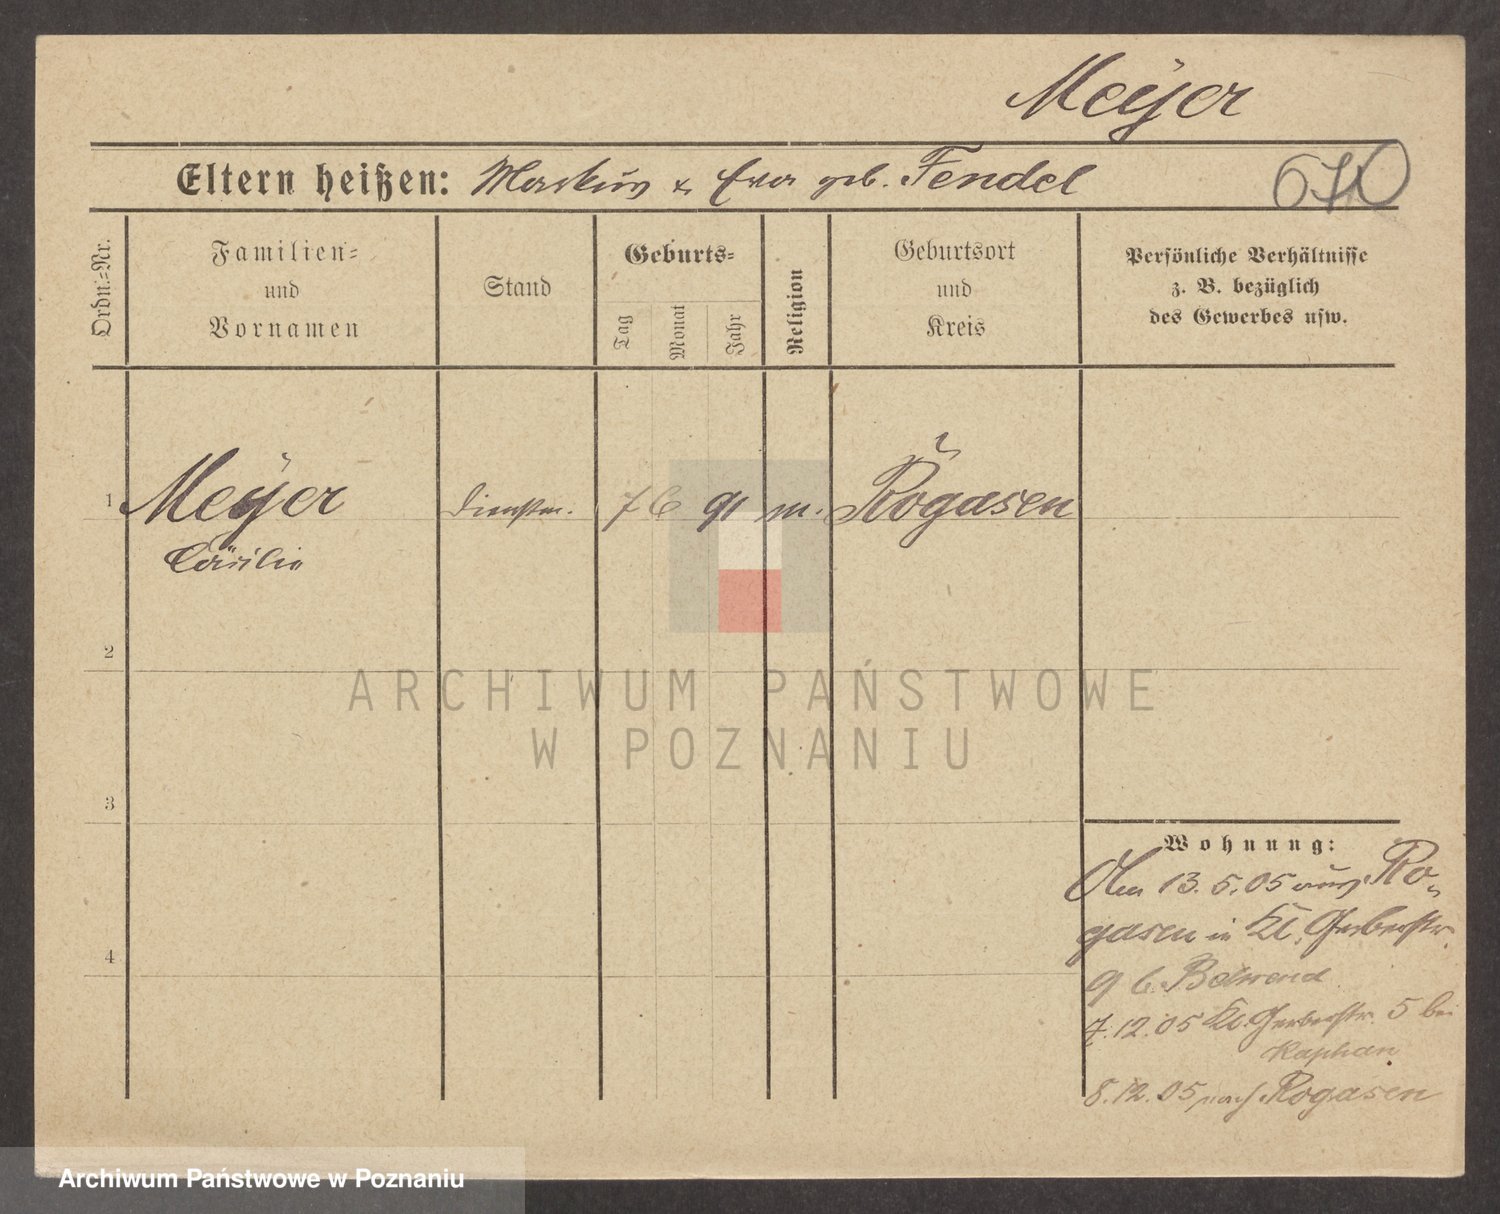 Meyer
Eltern heißen: Markus u. Eva geb. Fendel
670
Ordn.=Nr.
Familien=
und
Vornamen
Stand
Geburts=
Tag
Monat
Jahr
Religion
Geburtsort
und
Kreis
Persönliche Verhältnisse
z. B. bezüglich
des Gewerbes usw.
1 Meyer Dienstm. 7 6 91 m. Rogasen
Cäcilie
2
ARCHIWUM PAŃSTWOWE
W POZNANIU
3
Wohnung:
13. 5. 05 aus Ro-
gasen in Kl. Gerberstr.
9 b. Behrend
7. 12. 05 Kl. Gerberstr. 5 bei
Kaphan
8. 12. 05 nach Rogasen
4
Archiwum Państwowe w Poznaniu